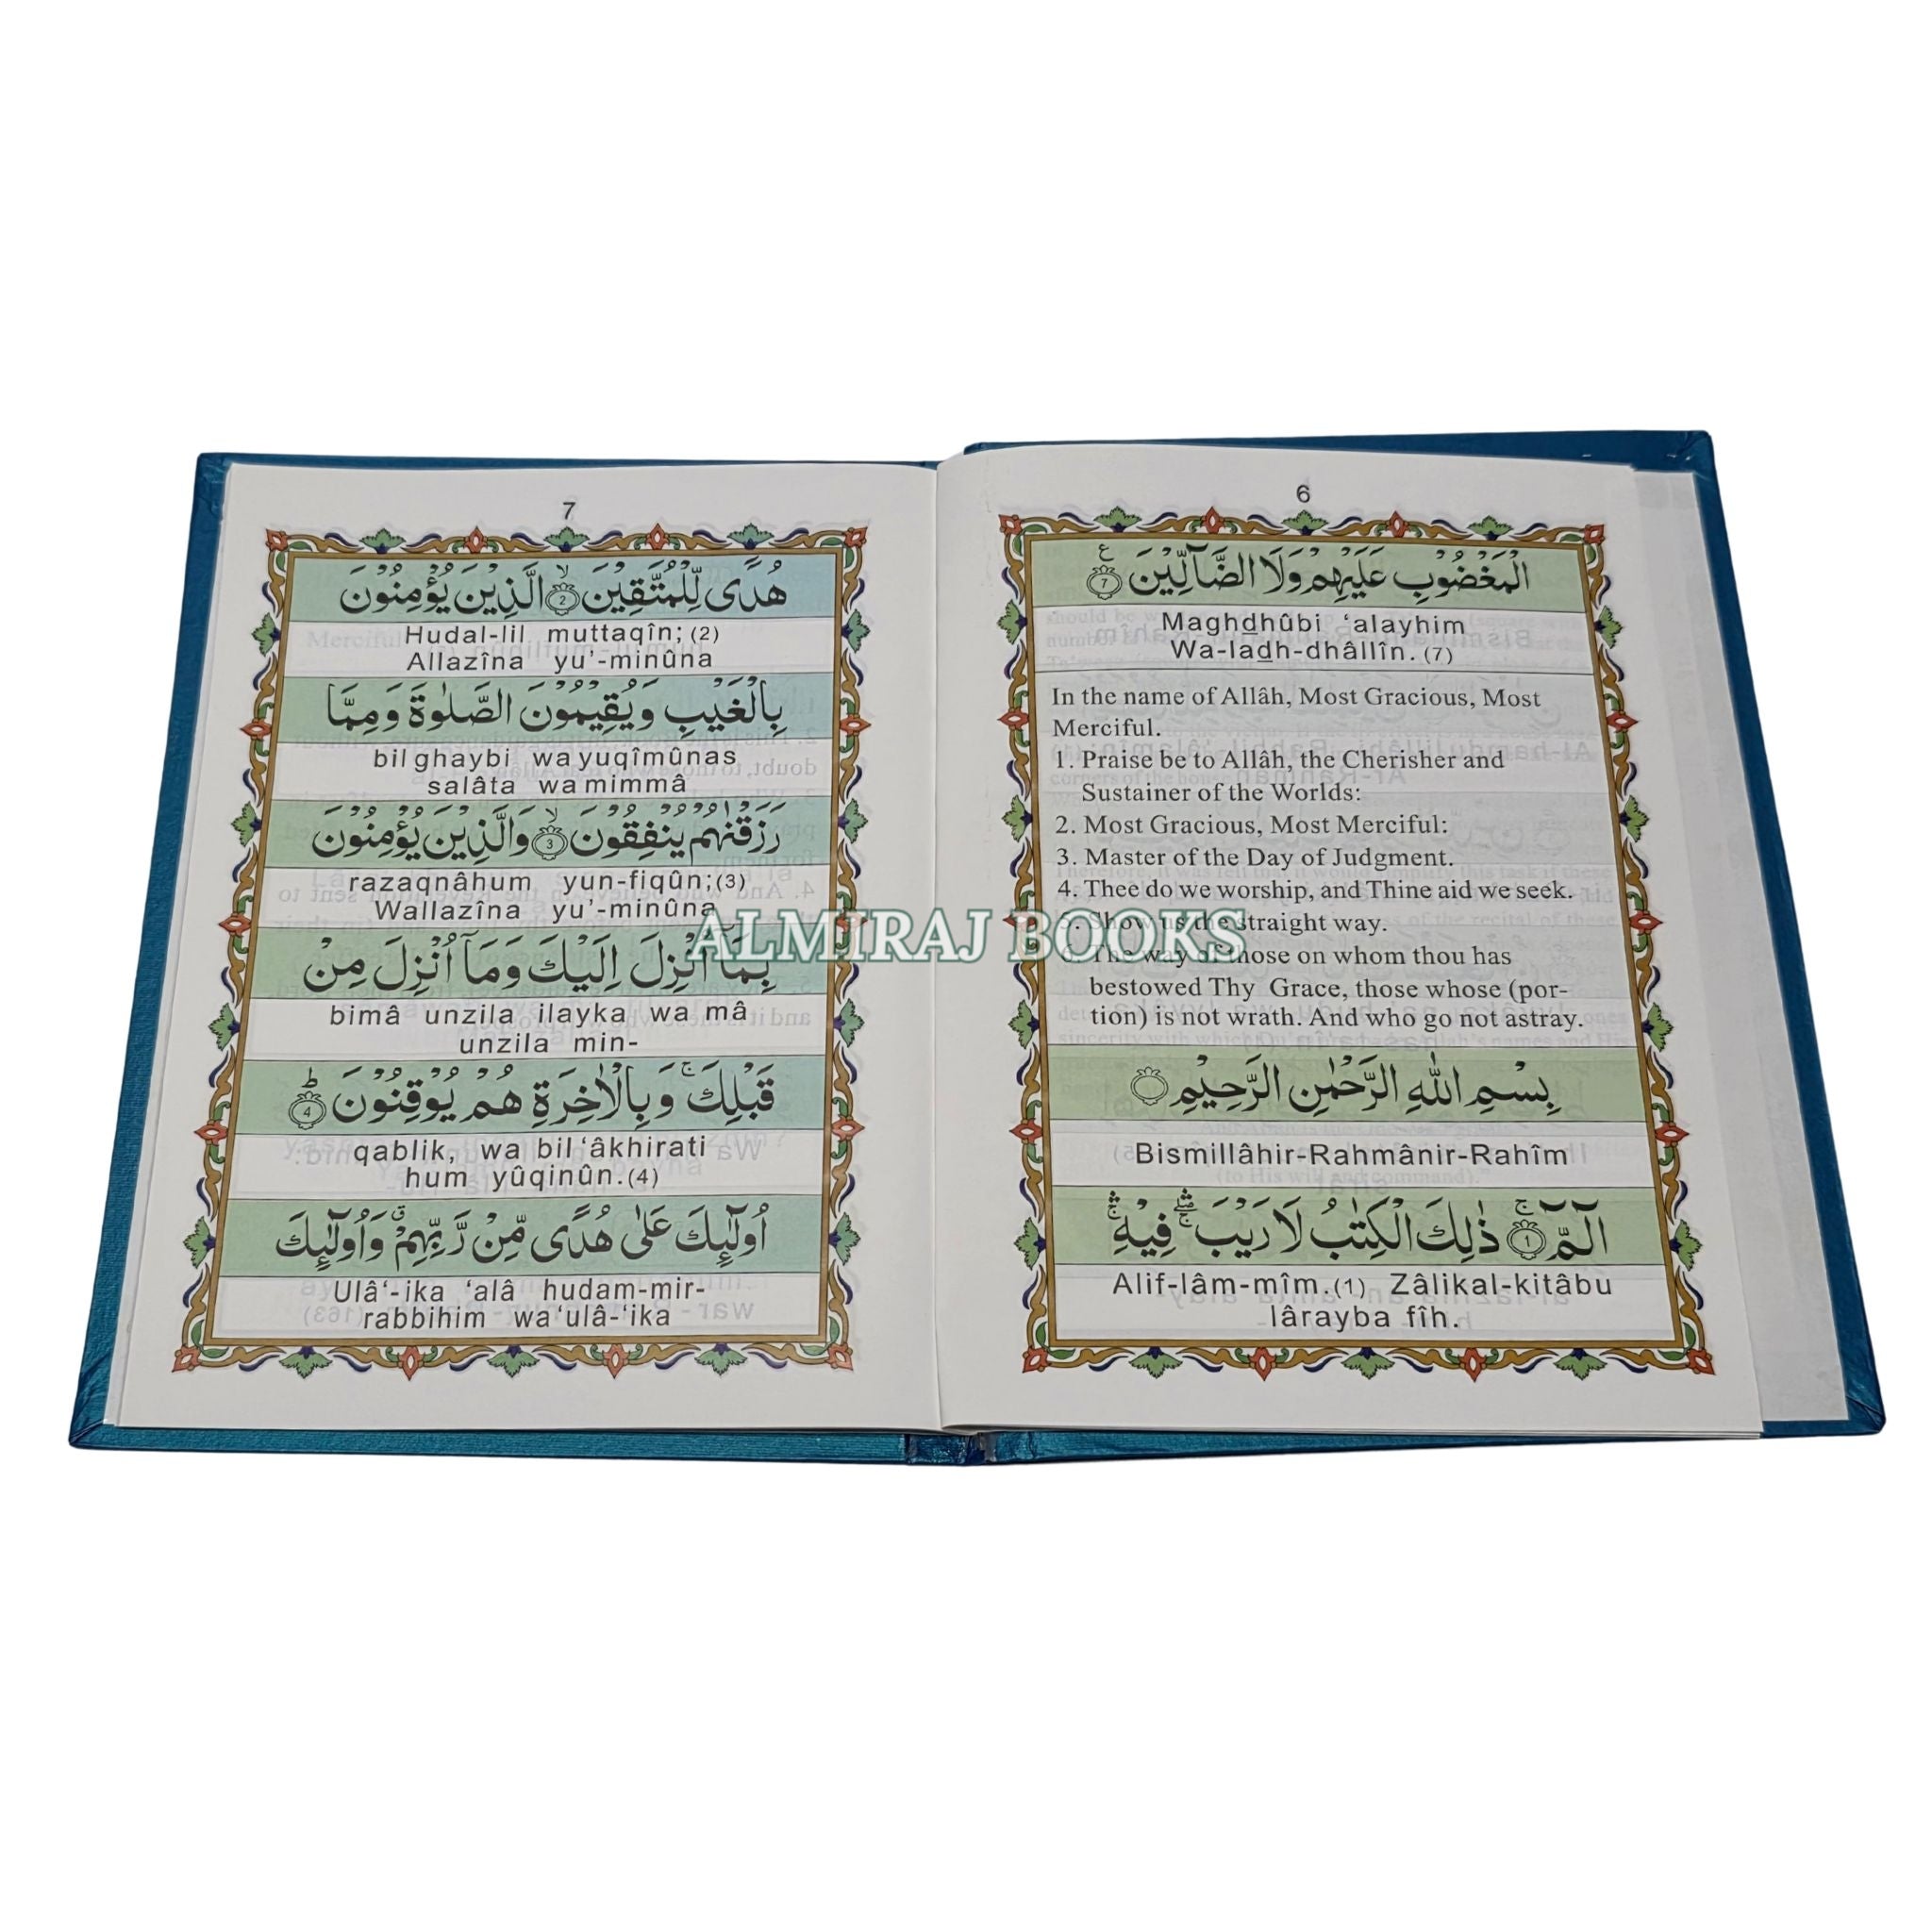 6
الْمَغْضُوْبِ عَلَيْهِمْ وَلَا الضَّآلِّيْنَ ۷ ع
Maghdhûbi ‘alayhim
Wa-ladh-dhâllîn. (7)
In the name of Allâh, Most Gracious, Most
Merciful.
1. Praise be to Allâh, the Cherisher and
Sustainer of the Worlds:
2. Most Gracious, Most Merciful:
3. Master of the Day of Judgment.
4. Thee do we worship, and Thine aid we seek.
5. Show us the straight way.
6. The way of those on whom thou has
bestowed Thy Grace, those whose (por-
tion) is not wrath. And who go not astray.
بِسْمِ اللّٰهِ الرَّحْمٰنِ الرَّحِيْمِ
Bismillâhir-Rahmânir-Rahîm
الٓمّٓ ۚ 1 ذٰلِكَ الْكِتٰبُ لَا رَيْبَ ۛ فِيْهِ ۛ
Alif-lâm-mîm.(1) Zâlikal-kitâbu
lârayba fîh.
7
هُدًى لِّلْمُتَّقِيْنَ ۙ 2 الَّذِيْنَ يُؤْمِنُوْنَ
Hudal-lil muttaqîn; (2)
Allazîna yu’-minûna
بِالْغَيْبِ وَيُقِيْمُوْنَ الصَّلٰوةَ وَمِمَّا
bil ghaybi wa yuqîmûnas
salâta wa mimmâ
رَزَقْنٰهُمْ يُنْفِقُوْنَ ۙ 3 وَالَّذِيْنَ يُؤْمِنُوْنَ
razaqnâhum yun-fiqûn;(3)
Wallazîna yu’-minûna
بِمَآ اُنْزِلَ اِلَيْكَ وَمَآ اُنْزِلَ مِنْ
bimâ unzila ilayka wa mâ
unzila min-
قَبْلِكَ ۚ وَبِالْاٰخِرَةِ هُمْ يُوْقِنُوْنَ ؕ 4
qablik, wa bil ‘âkhirati
hum yûqinûn.(4)
اُولٰٓئِكَ عَلٰى هُدًى مِّنْ رَّبِّهِمْ ۗ وَاُولٰٓئِكَ
Ulâ‘-ika ‘alâ hudam-mir-
rabbihim wa‘ulâ-‘ika
ALMIRAJ BOOKS